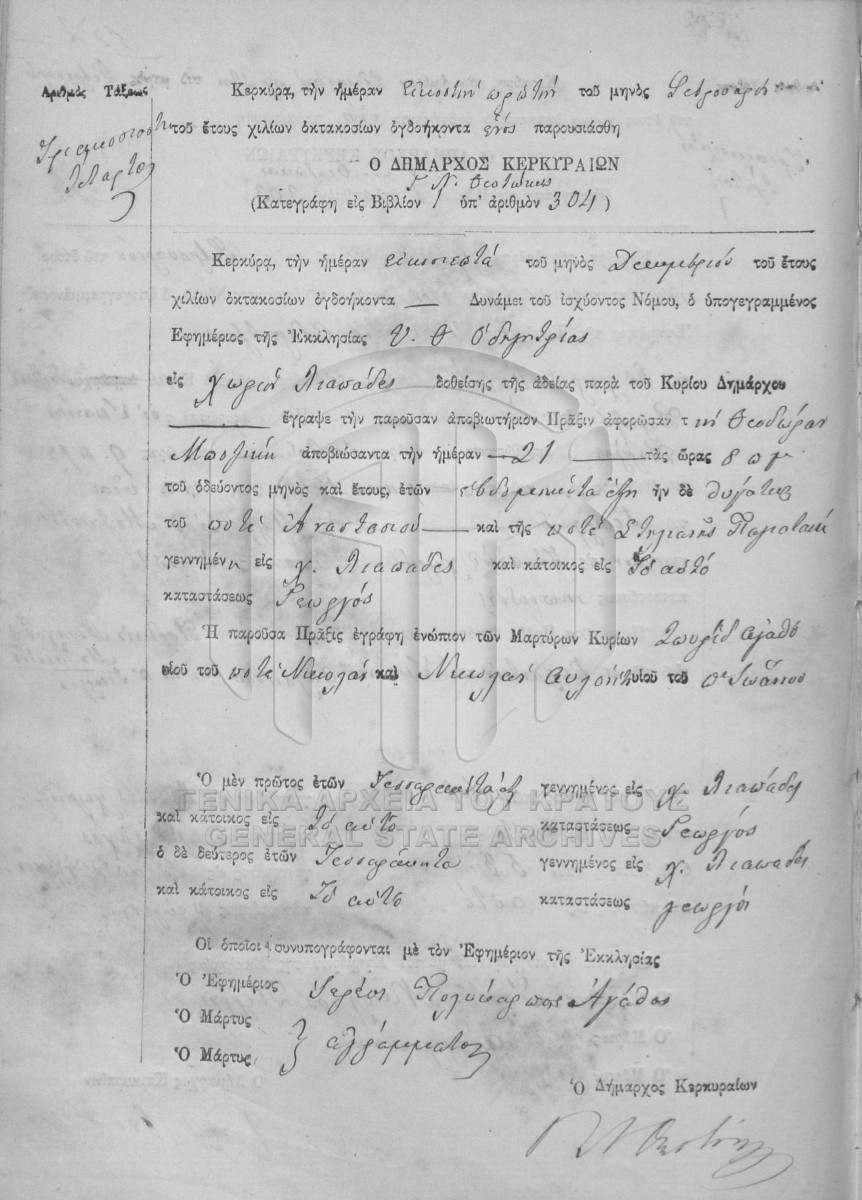 Ἀριθμὸς Τάξεως
Τριακοσιοστὴ
Τετάρτη
Κερκύρᾳ, τὴν ἡμέραν εἰκοστὴν πρώτην τοῦ μηνὸς Φεβρουαρίου
τοῦ ἔτους χιλίων ὀκτακοσίων ὀγδοήκοντα ἑνὸς παρουσιάσθη
Ο ΔΗΜΑΡΧΟΣ ΚΕΡΚΥΡΑΙΩΝ
Γ. Ν. Θεοτόκης
(Κατεγράφη εἰς Βιβλίον 1 ὑπ' ἀριθμὸν 304)
Κερκύρᾳ, τὴν ἡμέραν τοῦ μηνὸς Δεκεμβρίου τοῦ ἔτους
χιλίων ὀκτακοσίων ὀγδοήκοντα — Δυνάμει τοῦ ἰσχύοντος Νόμου, ὁ ὑπογεγραμμένος
Ἐφημέριος τῆς Ἐκκλησίας Υ. Θ Ὁδηγητρίας
εἰς χωρίον Λιαπάδες δοθείσης τῆς ἀδείας παρὰ τοῦ Κυρίου Δημάρχου
— ἔγραψε τὴν παροῦσαν ἀποβιωτήριον Πρᾶξιν ἀφορῶσαν τὴν Θεοδώραν
ἀποβιώσαντα τὴν ἡμέραν — 21 — τὰς ὥρας 8 π μ
τοῦ ὁδεύοντος μηνὸς καὶ ἔτους, ἐτῶν ἑβδομηκόντα ἕξη ἦν δὲ θυγάτηρ
τοῦ ποτὲ Ἀναστασίου — καὶ τῆς ποτὲ Στυλιανῆς
γεννημένη εἰς χ. Λιαπάδες καὶ κάτοικος εἰς Τὸ αὐτό
καταστάσεως Γεωργός
Ἡ παροῦσα Πρᾶξις ἐγράφη ἐνώπιον τῶν Μαρτύρων Κυρίων Σπυρίδ Ἀγαθο
υἱοῦ τοῦ ποτὲ Νικολάου καὶ Νικολάου υἱοῦ τοῦ π Ἰωάννου
Ὁ μὲν πρῶτος ἐτῶν γεννημένος εἰς χ. Λιαπάδες
καὶ κάτοικος εἰς Τὸ αὐτό καταστάσεως Γεωργός
ὁ δὲ δεύτερος ἐτῶν Τεσσαράκοντα γεννημένος εἰς χ. Λιαπάδες
καὶ κάτοικος εἰς Τὸ αὐτό καταστάσεως γεωργός
Οἱ ὁποῖοι συνυπογράφονται μὲ τὸν Ἐφημέριον τῆς Ἐκκλησίας
Ὁ Ἐφημέριος Ἱερεὺς Πολύκαρπος Ἀγάθος
Ὁ Μάρτυς
Ὁ Μάρτυς ἀγράμματοι
Ὁ Δήμαρχος Κερκυραίων
Γ Ν Θεοτόκης
ΓΕΝΙΚΑ ΑΡΧΕΙΑ ΤΟΥ ΚΡΑΤΟΥΣ
GENERAL STATE ARCHIVES